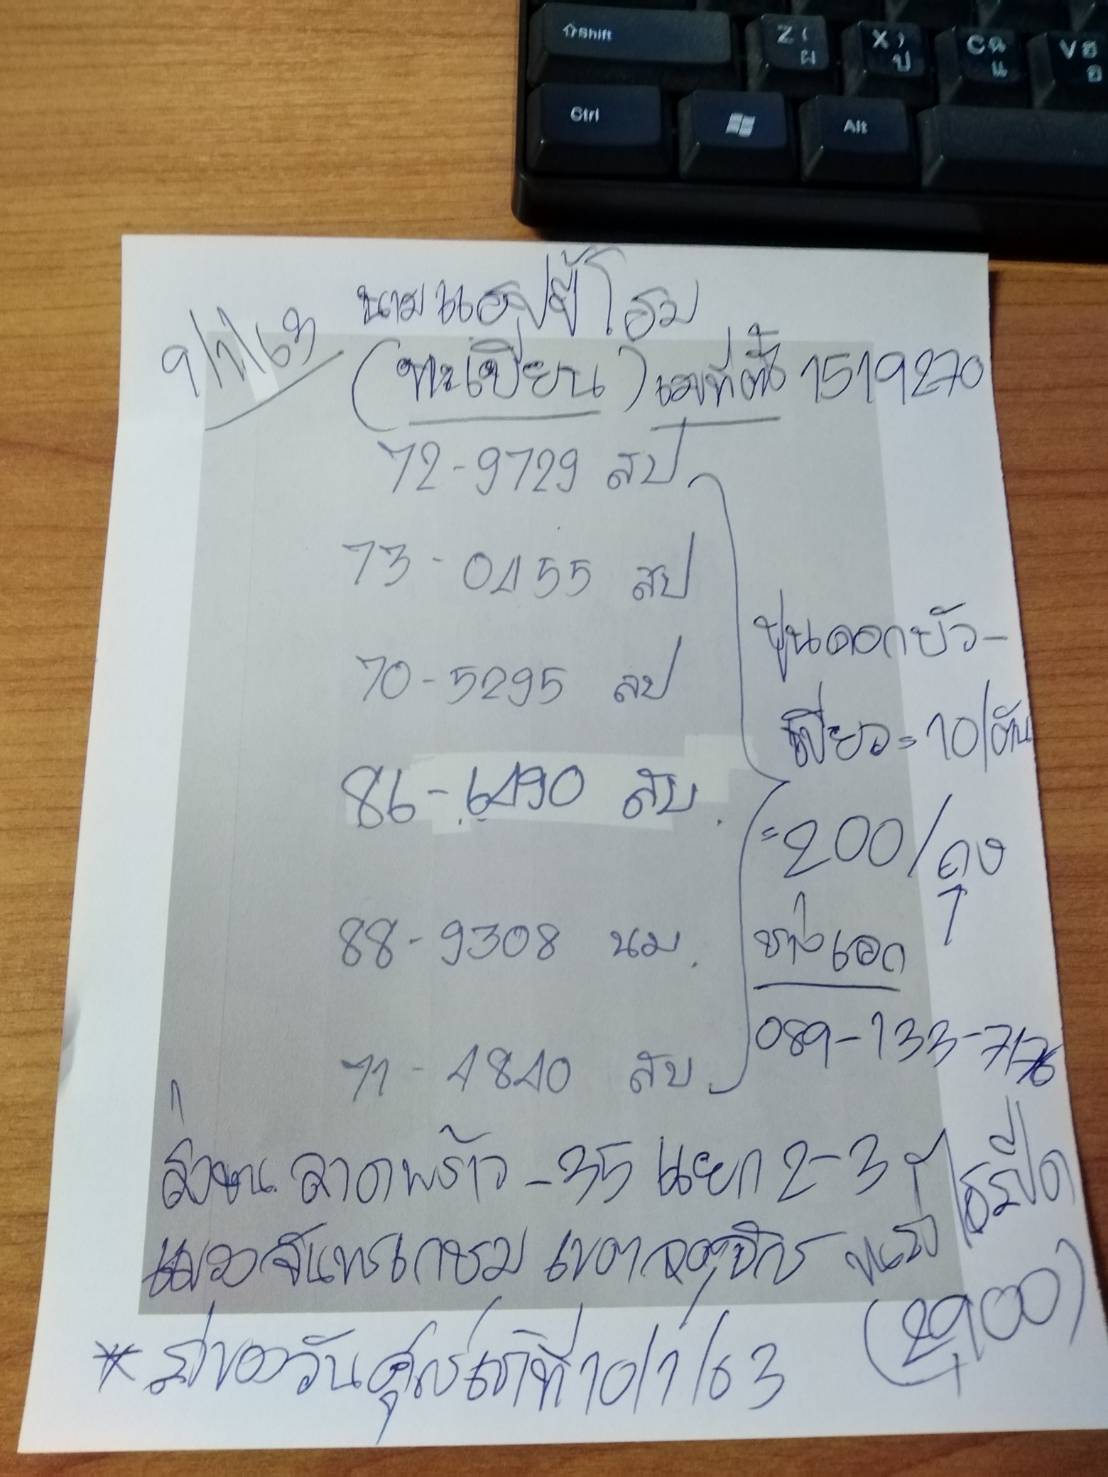 Shift
Z ( ผ
X ) ป
C ฉ แ
V ฮ อ
Ctrl
Alt
9/1/63
นามแฮปปี้โฮม
(ทะเบียน) เลขที่ตั้ง 1519270
72-9729 สป
73-0455 สป
70-5295 สป
86-6490 สบ.
88-9308 นม.
71-4840 สบ
ปูนดอกบัว-
เขียว=10/ตัน
=200/ถุง
ช่างเอก
089-133-7176
ลาดพร้าว-35 แยก 2-3
แขวงจันทรเกษม เขตจตุจักร
(2,900)
* วันศุกร์ที่ 10/1/63